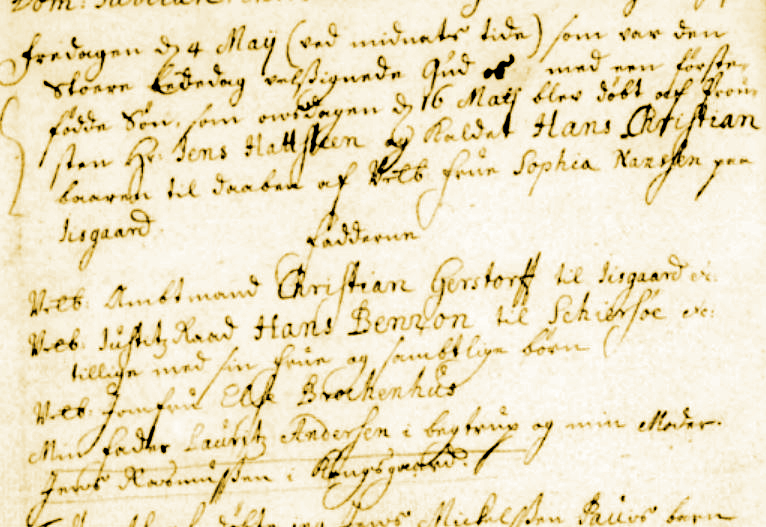 Fredagen d 4 Maij (ved midnats tide) som var den
Stoere Bededag velsignede Gud os med een første
fødde Søn, som onsdagen d 16 Maij blev døbt af Prou
sten Hr: Jens Hattsteen og kaldet Hans Christian
baaren til daaben af Velb: Frue Sophia Nanssen paa
Iisgaard
Fadderne
Velb: Ambtmand Christian Gerstorff til Iisgaard etc:
Velb: Justitz Raad Hans Benzon til Schiersøe etc:
tillige med sin Frue og sambtlige børn
Velb: Jomfru Else Brockenhus
Min Fader Lauritz Andersen i begtrup og min Moder.
Jens Rasmussen i Kongsgaard.
døbte jeg Jens Michelssen barn